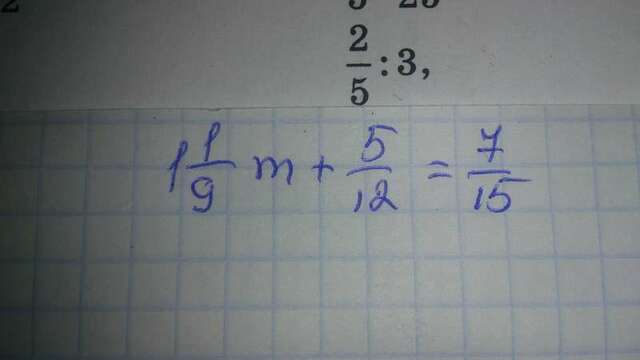 2
2/5 : 3,
1 1/9 m + 5/12 = 7/15